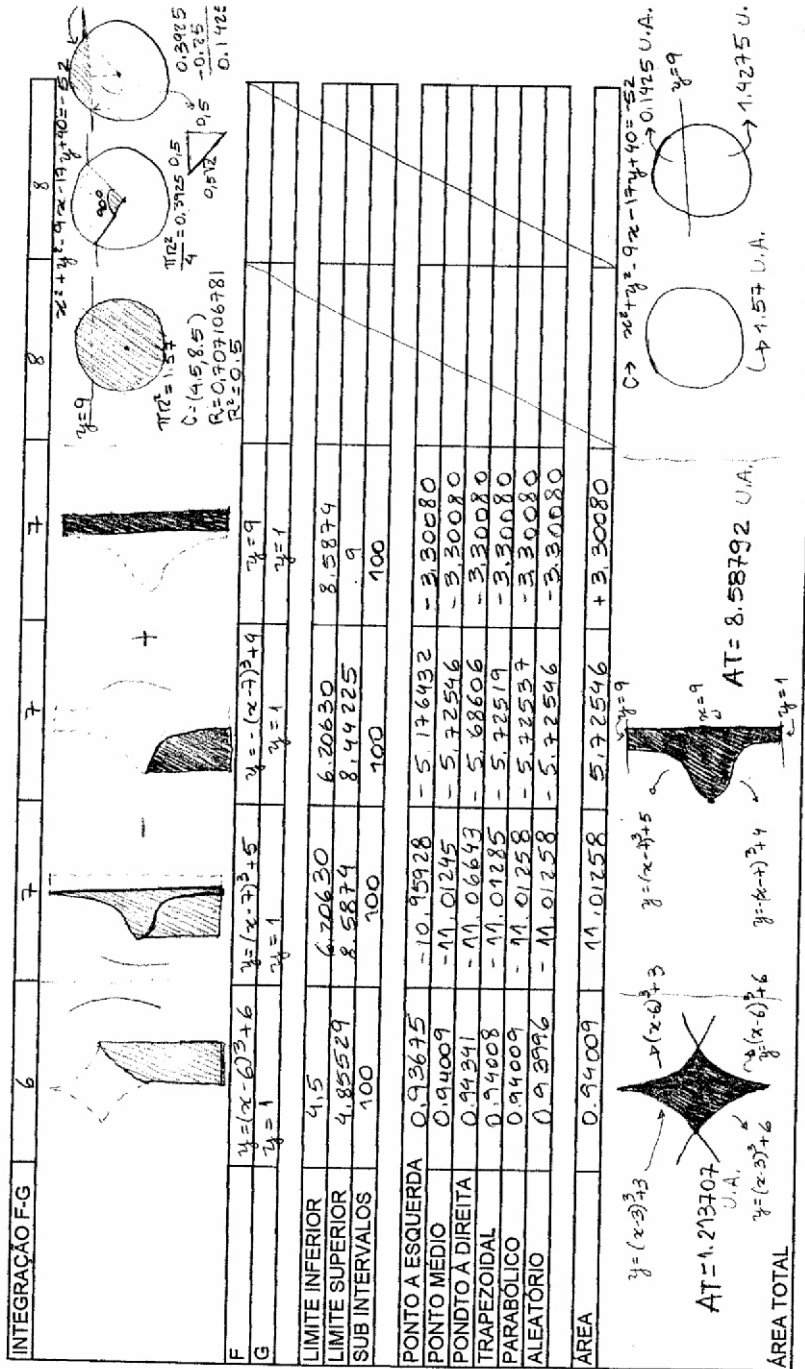 INTEGRAÇÃO F-G 6 7 7 7 8 8
- +
y=9
x²+y²-9x-17y+40=-52
πR²=1.57
C:(4.5,8.5)
R=0,707106781
R²=0.5
90°
πR²/4=0.3925
0,5
0,5
0,5√2
0.3925
-0.25
0.142
F y=(x-6)³+6 y=(x-7)³+5 y=-(x-7)³+4 y=9
G y=1 y=1 y=1 y=1
LIMITE INFERIOR 4,5 6.20630 6.20630 8.5874
LIMITE SUPERIOR 4,85529 8.5874 8.44225 9
SUB INTERVALOS 100 100 100 100
PONTO A ESQUERDA 0.93675 -10.95928 -5.176432 -3.30080
PONTO MÉDIO 0.94009 -11.01245 -5.72546 -3.30080
PONDTO À DIREITA 0.94341 -11.06643 -5.68606 -3.30080
TRAPEZOIDAL 0.94008 -11.01285 -5.72519 -3.30080
PARABÓLICO 0.94009 -11.01258 -5.72537 -3.30080
ALEATÓRIO 0.93996 -11.01258 -5.72546 -3.30080
ÁREA 0.94009 11.01258 5.72546 +3.30080
y=(x-3)³+3
(x-6)³+3
AT=1.213707
U.A.
y=(x-3)³+6
y=(x-6)³+6
y=(x-7)³+5
y=9
x=9
y=-(x-7)³+4
y=1
AT= 8.58792 U.A.
C→ x²+y²-9x-17y+40=-52
1.57 U.A.
0.1425 U.A.
y=9
1.4275 U.
ÁREA TOTAL